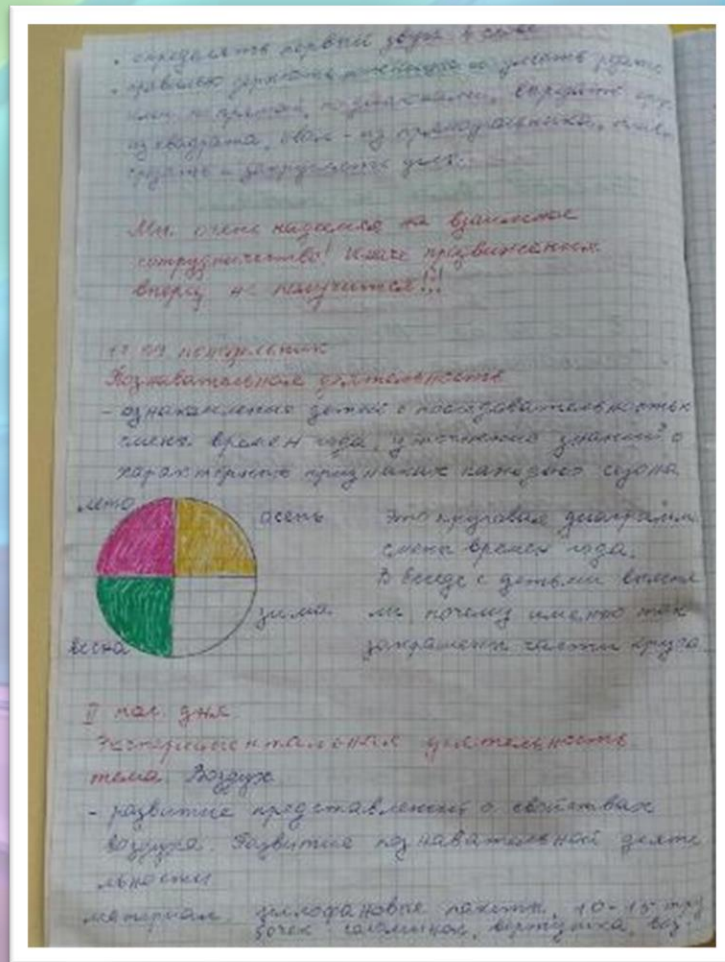 • определять первый звук в слове
• правильно держать ножницы и уметь резать
ими по прямой, по диагонали, вырезать круг
из квадрата, овал - из прямоугольника,
срезать и закруглять углы.
Мы очень надеемся на взаимное
сотрудничество! Иначе продвижения
вперёд не получится!!!
17.09 понедельник
Познавательная деятельность
- ознакомление детей с последовательностью
смены времен года, уточнение знаний о
характерных признаках каждого сезона
лето
осень
Это круговая диаграмм
смены времен года.
В беседе с детьми выясня
зима
ли, почему именно так
весна
закрашены части круга.
II пол. дня
Экспериментальная деятельность
тема Воздух
- развитие представлений о свойствах
воздуха. Развитие познавательной деяте
льности
материал целлофановые пакеты, 10-15 тру
бочек соломиной, вертушка, воз-